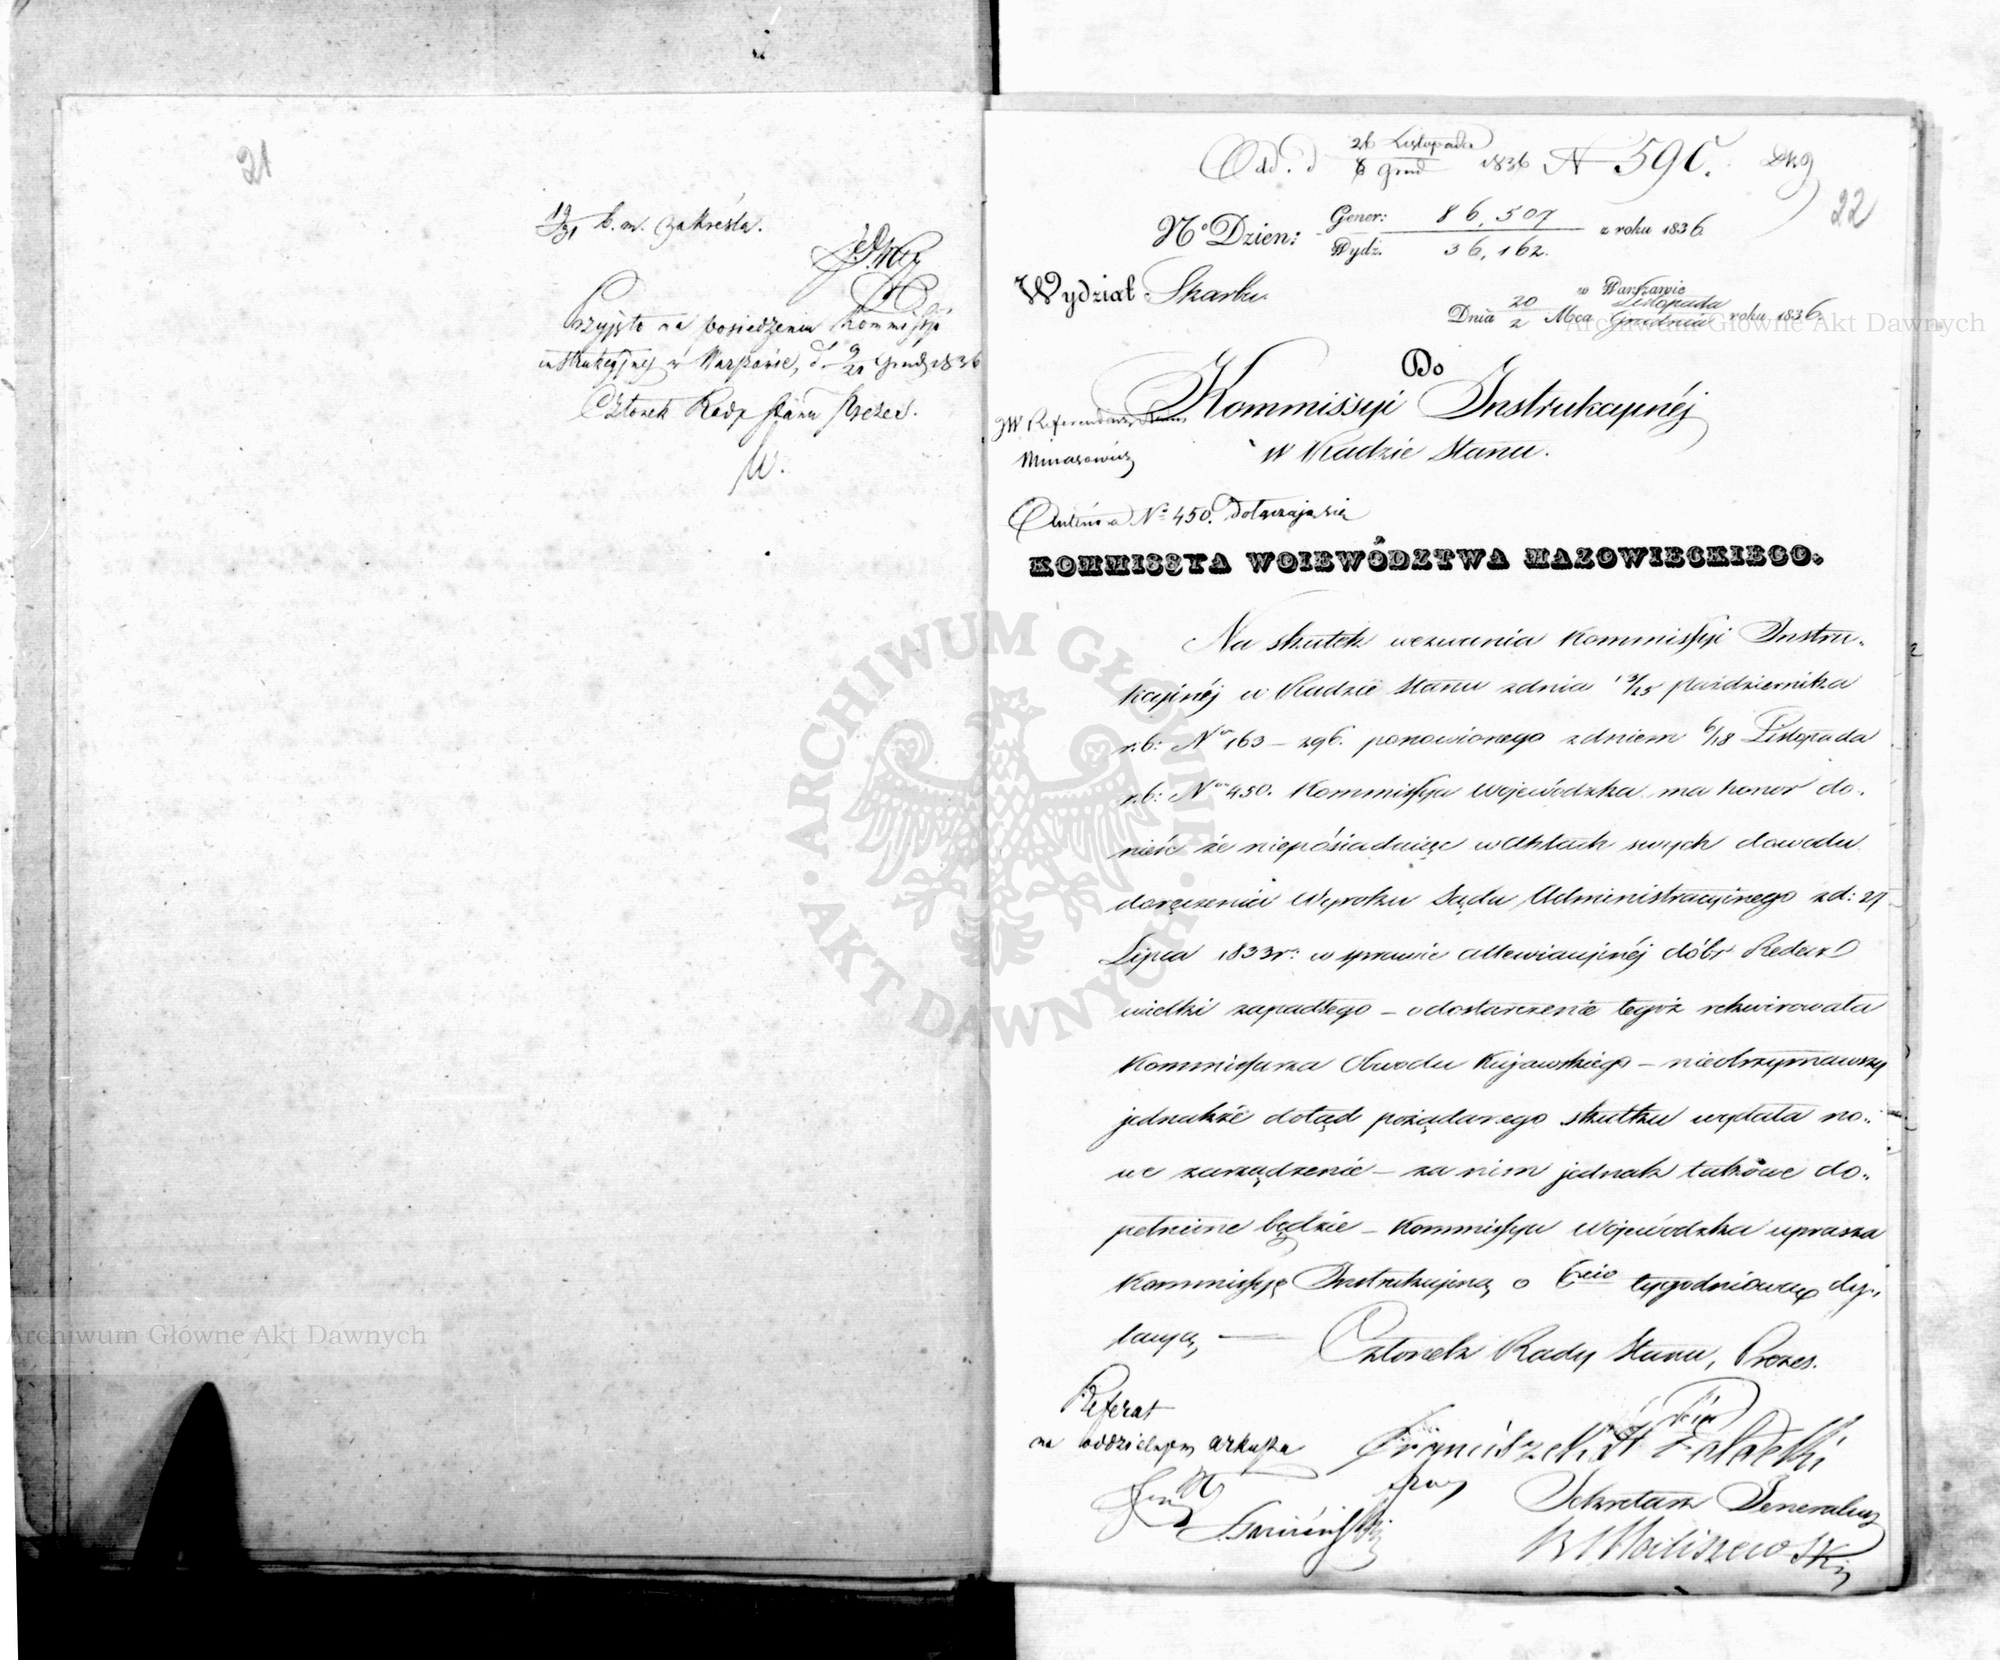 21
19/31 b. m. zakreśla.
Przyjęto na posiedzeniu Kommissyi
instrukcyjnej w Warszawie, d. 9/21 Grud. 1836
Członek Rady Stanu Prezes.
Odd. d 26 Listopada / 8 Grud 1836 N 590.
22
No Dzien: Gener: 86,507 / Wydz. 36,162. z roku 1836
Wydział Skarbu.
w Warszawie
Dnia 20/2 Mca Listopada / Grudnia roku 1836.
Do
Kommissyi Instrukcyinéj
w Radzie Stanu.
JW Referendarz Stanu
Minasowicz
No 450. dołączają się
KOMMISSYA WOIEWÓDZTWA MAZOWIECKIEGO.
Na skutek wezwania Kommissyi Instru-
kcyinéj w Radzie Stanu z dnia 13/25 Października
r.b: Nro 163 – 296. ponowionego z dniem 6/18 Listopada
r.b: Nro 450. Kommissya Wojewódzka ma honor do-
nieść że nieposiadaiąc w Aktach swych dowodu
doręczenia Wyroku Sądu Administracyinego z d: 27
Lipca 1833 r: w sprawie allewiacyinéj dóbr Redecz
wielki zapadłego – o dostarczenie tegoż rekwirowała
Kommissarza Obwodu Kujawskiego – nieotrzymawszy
jednakże dotąd pożądanego skutku wydała no-
we zarządzenie – za nim jednak takowe do-
pełnione będzie – Kommissya Wojewódzka uprasza
Kommissyę Instrukcyiną o 6cio tygodniową dy-
lacyą, —
Członek Rady Stanu, Prezes.
Referat
na oddzielnym arkuszu
Sekretarz Generalny
ARCHIWUM GŁÓWNE · AKT DAWNYCH ·
Archiwum Główne Akt Dawnych
Archiwum Główne Akt Dawnych